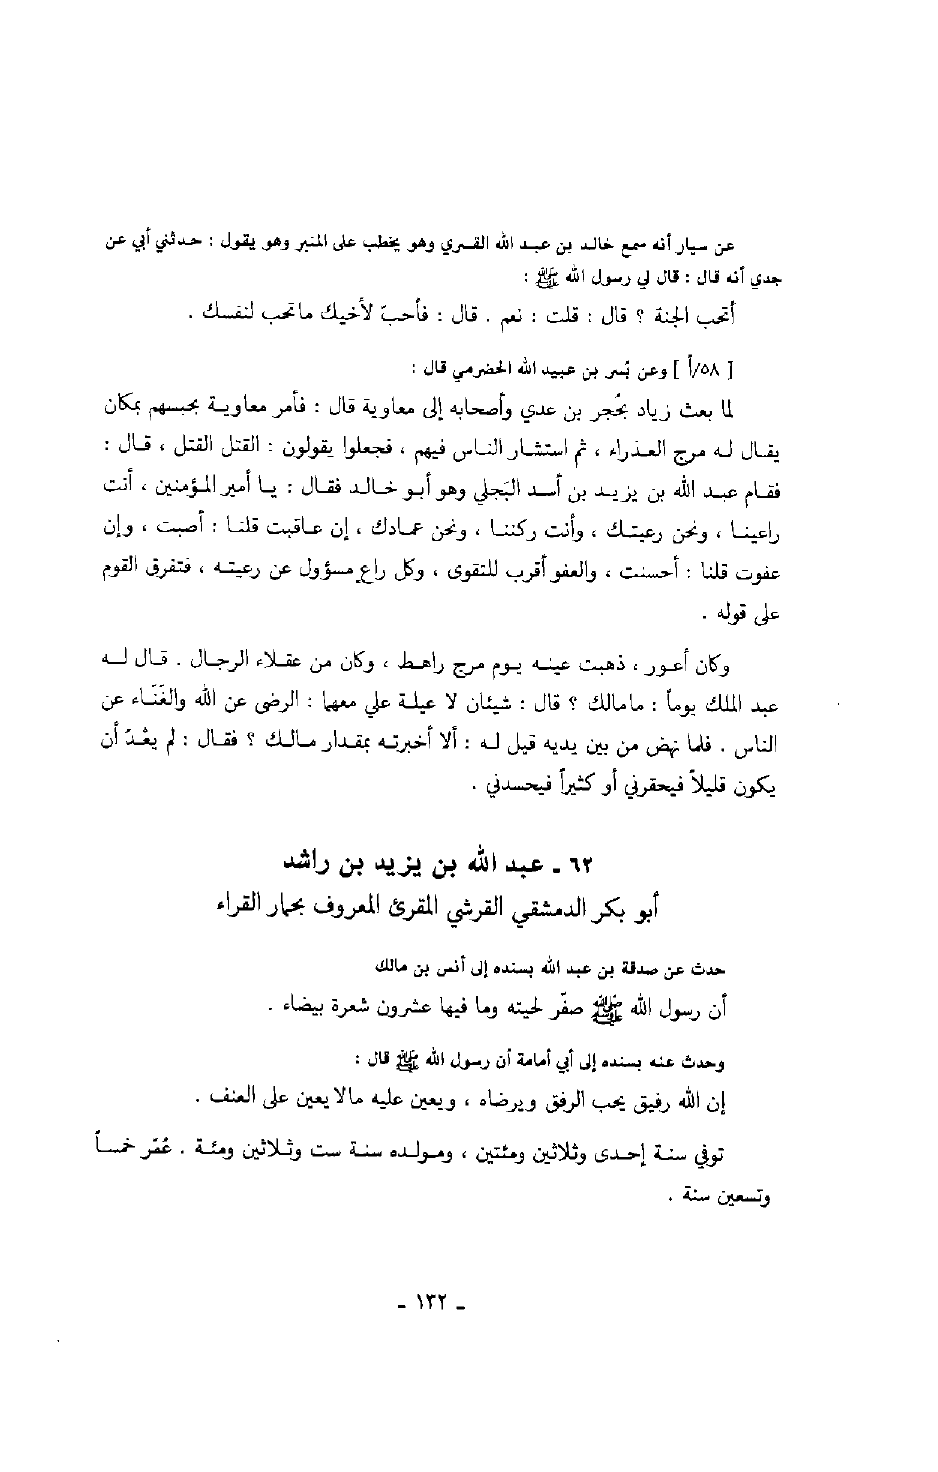 عن سيار أنه سمع خالد بن عبد الله القسري وهو يخطب على المنبر وهو يقول : حدثني أبي عن
جدي أنه قال : قال لي رسول الله ﷺ :
أتحب الجنة ؟ قال : قلت : نعم . قال : فأحبّ لأخيك ماتحب لنفسك .
[ ٥٨/أ ] وعن بُسر بن عبيد الله الحضرمي قال :
لما بعث زياد بحُجر بن عدي وأصحابه إلى معاوية قال : فأمر معاوية بحبسهم بمكان
يقال له مرج العذراء ، ثم استشار الناس فيهم ، فجعلوا يقولون : القتل القتل ، قال :
فقام عبد الله بن يزيد بن أسد البَجلي وهو أبو خالد فقال : يا أمير المؤمنين ، أنت
راعينا ، ونحن رعيتك ، وأنت ركننا ، ونحن عمادك ، إن عاقبت قلنا : أصبت ، وإن
عفوت قلنا : أحسنت ، والعفو أقرب للتقوى ، وكل راعٍ مسؤول عن رعيته ، فتفرق القوم
على قوله .
وكان أعور ، ذهبت عينه يوم مرج راهط ، وكان من عقلاء الرجال . قال له
عبد الملك يوماً : مامالك ؟ قال : شيئان لا عيلة علي معهما : الرضى عن الله والغَنَاء عن
الناس . فلما نهض من بين يديه قيل له : ألا أخبرته بمقدار مالك ؟ فقال : لم يعْدُ أن
يكون قليلاً فيحقرني أو كثيراً فيحسدني .
٦٢ ـ عبد الله بن يزيد بن راشد
أبو بكر الدمشقي القرشي المقرئ المعروف بحمار القراء
حدث عن صدقة بن عبد الله بسنده إلى أنس بن مالك
أن رسول الله ﷺ صفّر لحيته وما فيها عشرون شعرة بيضاء .
وحدث عنه بسنده إلى أبي أمامة أن رسول الله ﷺ قال :
إن الله رفيق يحب الرفق ويرضاه ، ويعين عليه مالا يعين على العنف .
توفي سنة إحدى وثلاثين ومئتين ، ومولده سنة ست وثلاثين ومئة . عُمّر خمساً
وتسعين سنة .
ـ ١٣٢ ـ